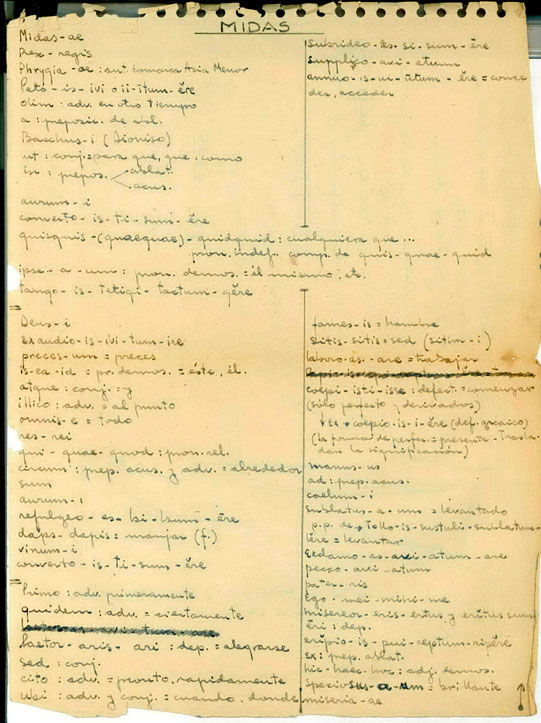 MIDAS
Midas-ae
Rex-regis
Phrygia-ae: ant. comarca Asia Menor
Peto-is-ivi o ii-itum-ĕre
olim: adv. en otro tiempo
a: preposic. de abl.
Bacchus-i (Dioniso)
ut: conj: para que, que, como
in: prepos. ablat.
acus.
aurum-i
converto-is-ti-sum-ĕre
quisquis-(quaequae)-quidquid: cualquiera que ...
pron. indef. comp. de quis-quae-quid
ipse-a-um: pron. demos. = él mismo, etc.
tango-is-tetigi-tactum-gĕre
subrideo-es-si-sum-ēre
supplico-avi-atum
annuo-is-ui-utum-ĕre = conce
der, acceder
Deus-i
exaudio-is-ivi-itum-ire
preces-um = preces
is-ea-id = pr. demos. = éste, él.
atque: conj. = y
illico: adv. = al punto
omnis-e = todo
res-rei
qui-quae-quod: pron. rel.
circum: prep. acus. y adv. = alrededor
sum
aurum-i
refulgeo-es-lsi-lsum-ēre
daps-dapis = manjar (f.)
vinum-i
converto-is-ti-sum-ĕre
Primo: adv. primeramente
quidem: adv. = ciertamente
laetor-aris-ari: dep. = alegrarse
sed: conj.
cito: adv. = pronto, rapidamente
ubi: adv. y conj. = cuando, donde
fames-is = hambre
sitis-sitis = sed (sitim-i)
laboro-as-are = trabajar
coepi-isti-isse: defect. = comenzar
(sólo perfecto y derivados)
coepio-is-i-ĕre (def. arcaico)
(la forma de perfec. = presente-Trasla-
dan la significación)
manus-us
ad: prep. acus.
caelum-i
sublatus-a-um = levantado
p.p. de tollo-is-sustuli-sublatum-
lĕre = levantar
exclamo-as-avi-atum-are
pecco-avi-atum
pater-ris
Ego-mei-mihi-me
misereor-eris-ertus y eritus sum
ēri: dep.
eripio-is-pui-reptum-ripĕre
ex: prep. ablat.
hic-haec-hoc: adj. demos.
speciosus-a-um = brillante
miseria-ae